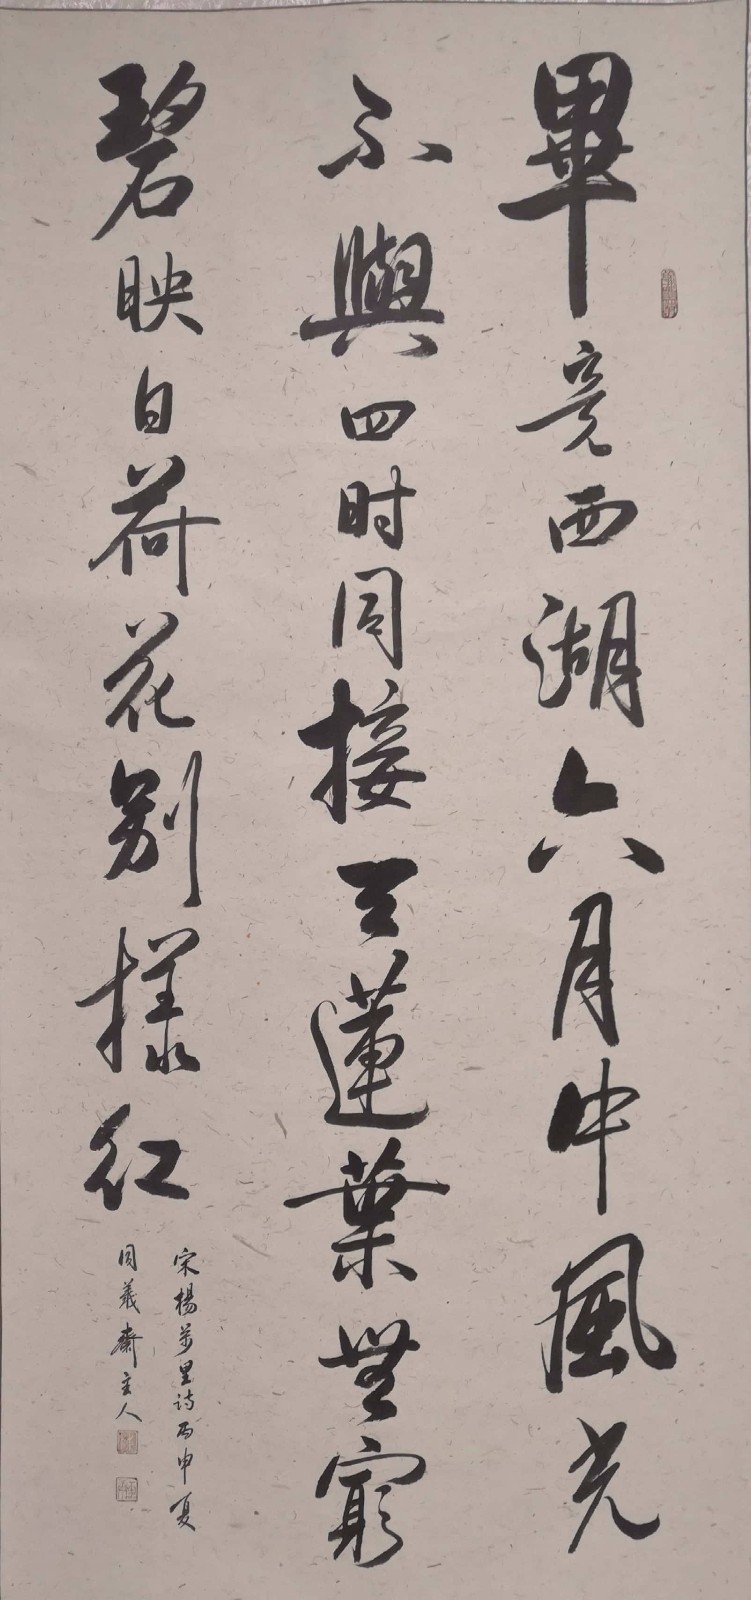 畢竟西湖六月中風光
不與四时同接天蓮葉無窮
碧映日荷花别樣紅
宋楊萬里诗丙申夏
同義齋主人